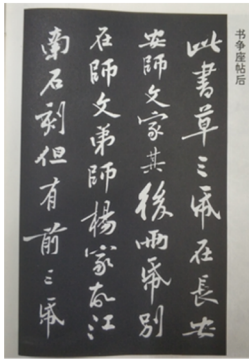 书争座帖后
此書草三帋在長安
安師文家其後兩帋別
在師文弟師楊家故江
南石刻但有前三帋